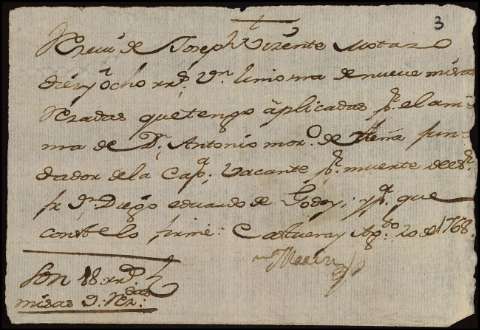 3
Rezivi de Joseph Vizente Notario
diez y ocho rrs. Vn. limosna de nueve misas
Rezadas que tengo aplicadas pr. el ani-
ma de Dn. Antonio mor.o de Peña fun-
dador de la Cap.a vacante pr. muerte de
fr. Dn. Diego eduardo de Godoy; y pa. que
conste lo firmé: y Ag.to 20 de 1768
Son 18. rrs.
misas 9. Rez.das